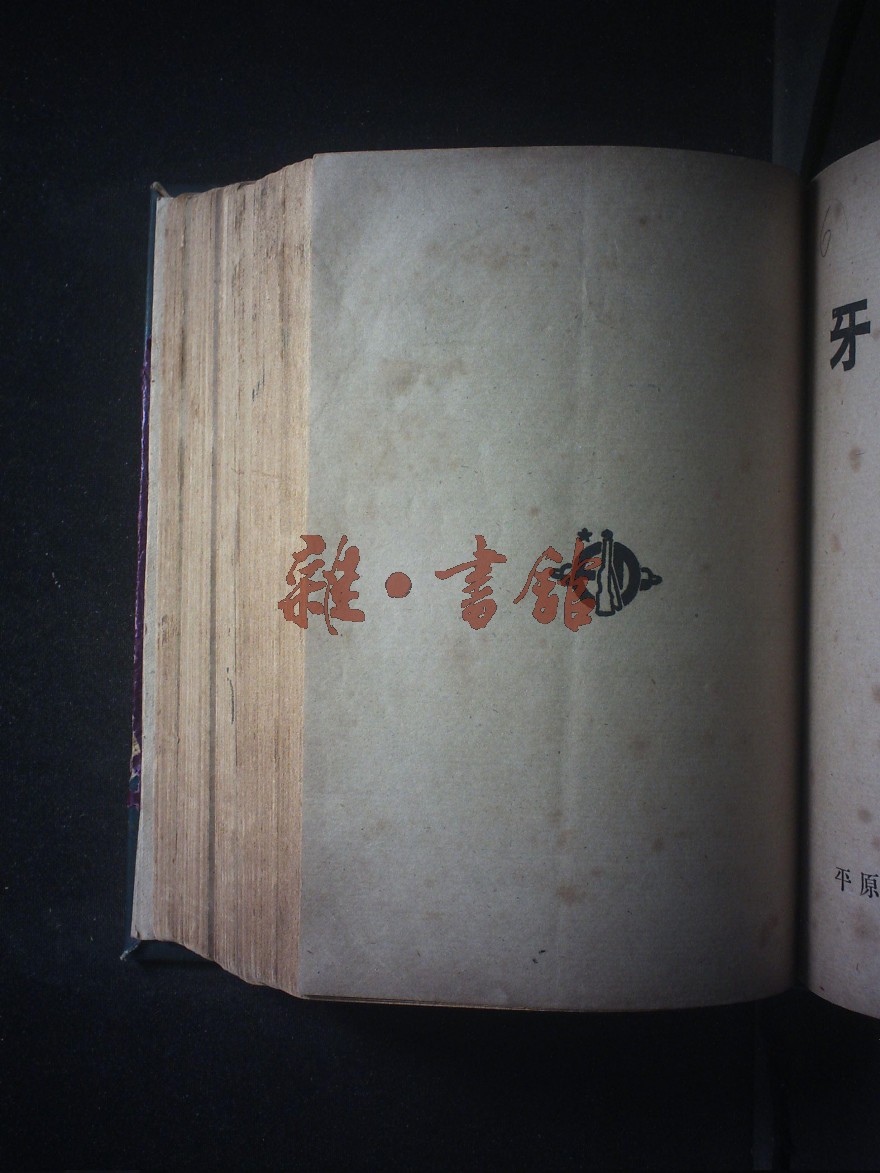 雜·書館
6
牙
平原